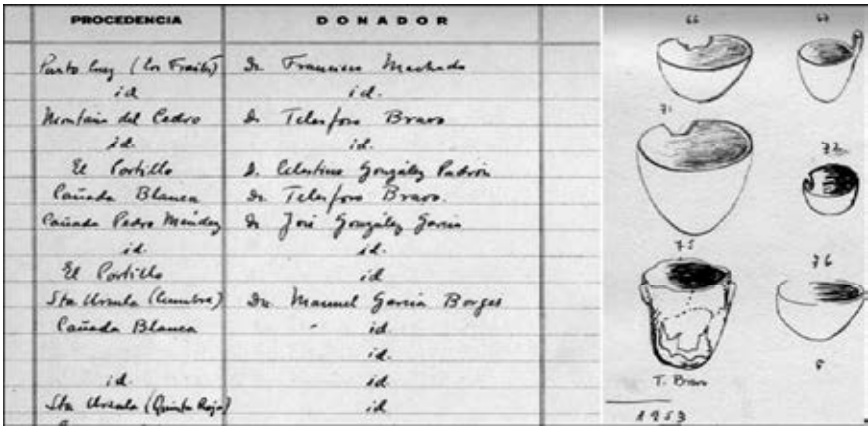 PROCEDENCIA DONADOR
Punto Cruz (Los Frailes) Dr. Francisco Machado
id id.
Montaña del Cedro Dr. Telesforo Bravo
id. id.
El Portillo D. Celestino González Padrón
Cañada Blanca Dr. Telesforo Bravo.
Cañada Pedro Méndez Dr José González García
id. id.
El Portillo id
Sta Ursula (Cumbre) Dn. Manuel García Borges
Cañada Blanca " id
id.
id. id
Sta Ursula (Quinta Roja) id
66 67
71
72
75
76
T. Bravo
8
1953